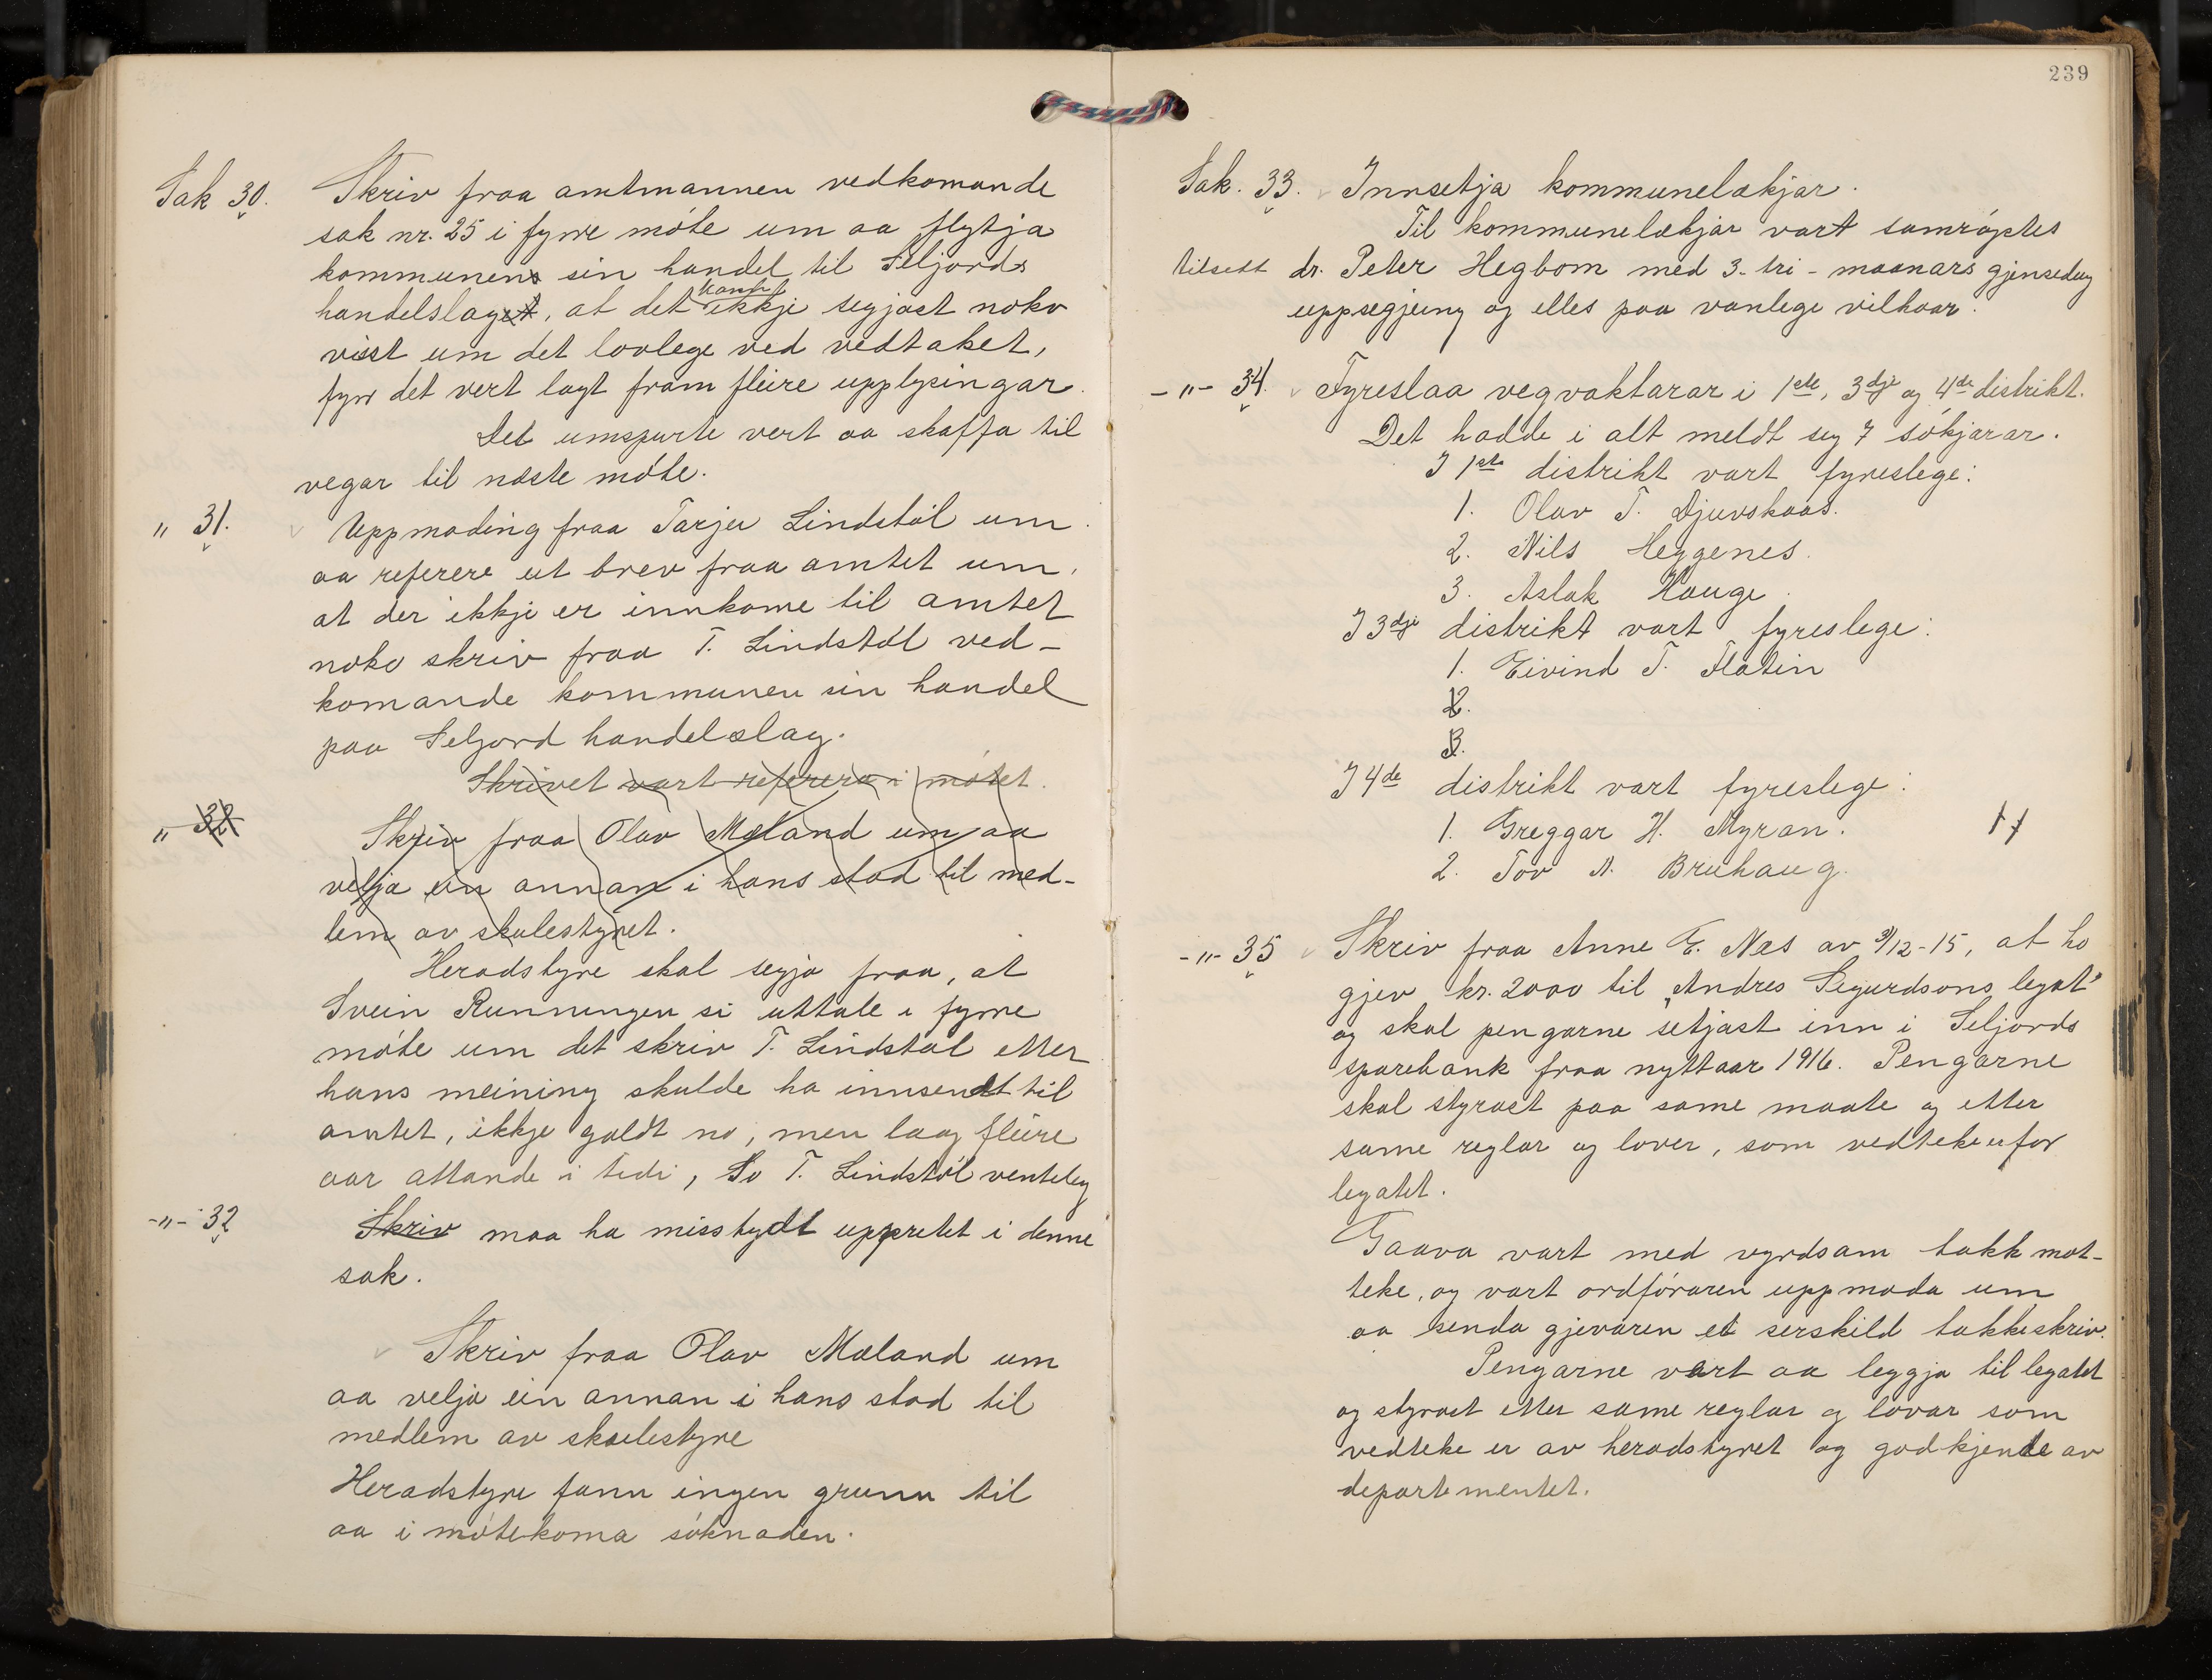 Sak 30. Skriv fraa amtmannen vedkomande
sak nr. 25 i fyrre móte um aa flytja
kommunens sin handel til Seljords
handelslaget, at det kann ikkje segjast noko
visst um det lovlege ved vedtaket,
fyrr det vert lagt fram fleire upplysingar.
Det umspurte vert aa skaffa til
vegar til næste móte.
" 31. Uppmoding fraa Tarjei Lindstól um
aa referere eit brev fraa amtet um,
at der ikkje er innkome til amtet
noko skriv fraa T. Lindstól ved-
komande kommunen sin handel
paa Seljord handelslag.
Skrivet vart referera i mótet.
" 32 Skriv fraa Olav Mæland um aa
velja ein annan i hans stad til med-
lem av skulestyret.
Heradstyre skal segja fraa, at
Svein Runningen si uttale i fyrre
móte um det skriv T. Lindstól etter
hans meining skulde ha innsendt til
amtet, ikkje galdt no, men laag fleire
aar attande i tidi, So T. Lindstól venteleg
-"- 32 Skriv maa ha misstydt uppretet i denne
sak.
Skriv fraa Olav Mæland um
aa velja ein annan i hans stad til
medlem av skulestyre
Heradstyre fann ingen grunn til
aa i mótekoma sóknaden.
239
Sak. 33. Innsetja kommunelækjar.
Til kommunelækjar vart samróystes
tilsett dr. Peter Hegbom med 3-tri-maanars gjensedug
uppsegjeing og elles paa vanlege vilkaar.
-"- 34. Fyreslaa vegvaktarar i 1ste, 3dje og 4de distrikt.
Det hadde i alt meldt seg 7 sókjarar.
I 1ste distrikt vart fyreslege:
1. Olav T. Djuvskaas.
2. Nils Heggenes.
3. Aslak Hauge.
I 3dje distrikt vart fyreslege:
1. Eivind T. Flatin
2.
3.
I 4de distrikt vart fyreslege:
1. Greggar H. Myran.
2. Tov A. Bruhaug.
-"- 35 Skriv fraa Anne E. Næs av 9/12-15, at ho
gjev kr. 2000 til "Andres Sigurdsons legat"
og skal pengarne setjast inn i Seljords
sparebank fraa nyttaar 1916. Pengarne
skal styrast paa same maate og etter
same reglar og lover, som vedteke er for
legatet.
Gaava vart med vyrdsam takk mot-
teke, og vart ordfóraren uppmoda um
aa senda gjevaren et serskild takkeskriv.
Pengarne vert aa leggja til legatet
og styrast etter same reglar og lovar som
vedteke er av heradstyret og godkjende av
departementet.